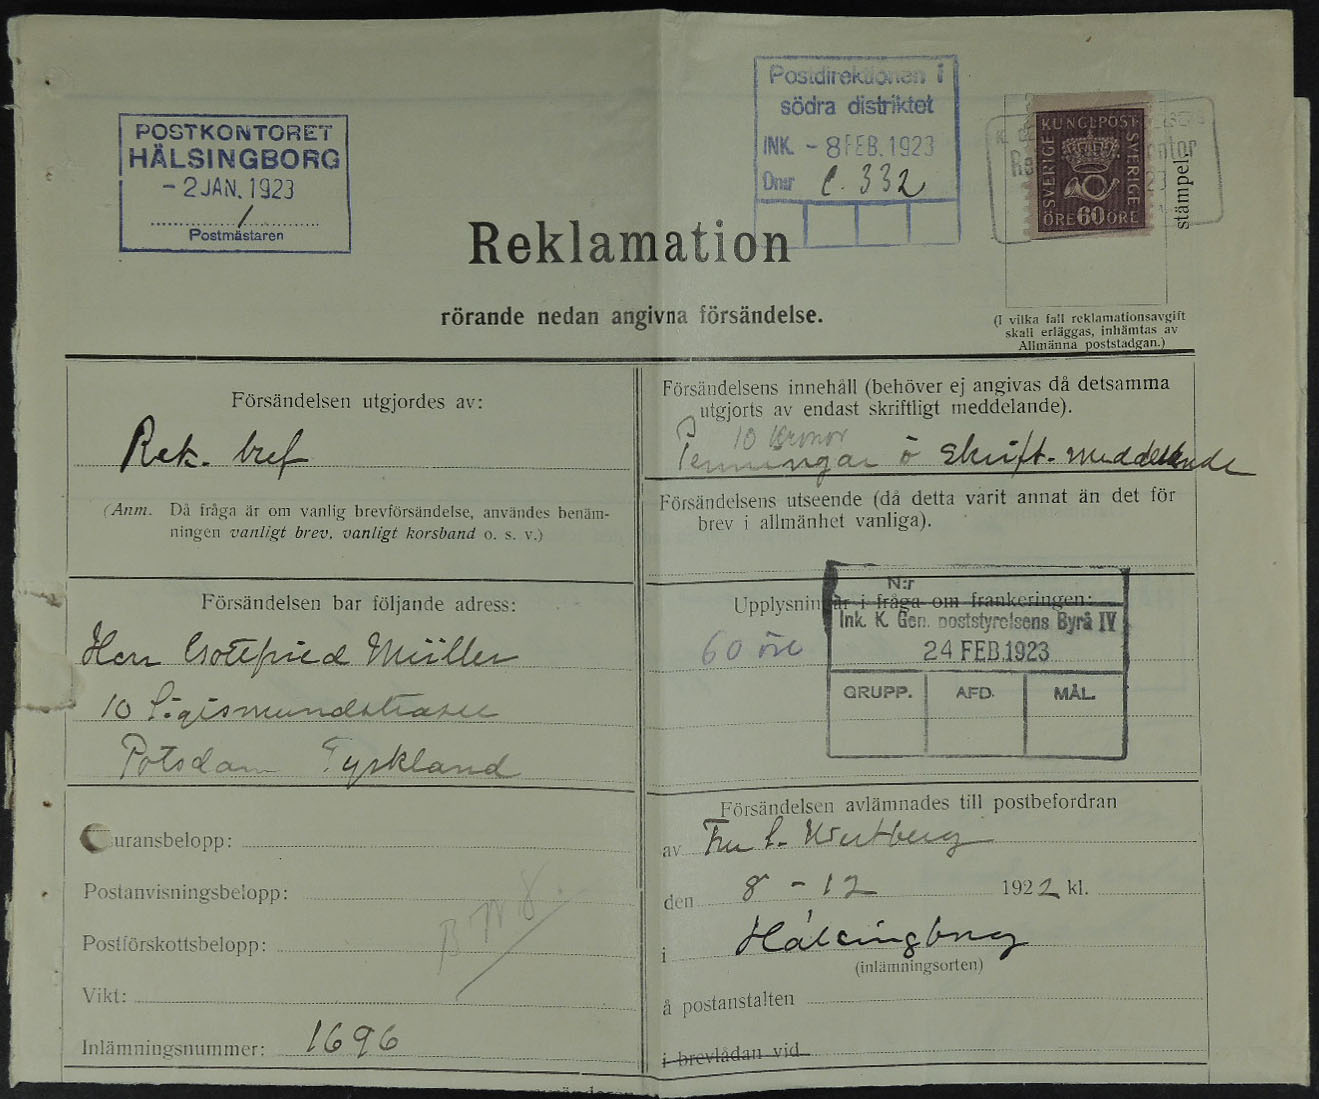 POSTKONTORET
HÄLSINGBORG
- 2 JAN. 1923
Postmästaren
Postdirektionen i
södra distriktet
INK. - 8 FEB. 1923
Dnr C. 332
KUNGL POST
SVERIGE SVERIGE
ÖRE 60 ÖRE
stämpel.
Reklamation
rörande nedan angivna försändelse.
(I vilka fall reklamationsavgift
skall erläggas, inhämtas av
Allmänna poststadgan.)
Försändelsen utgjordes av:
Rek. bref
(Anm. Då fråga är om vanlig brevförsändelse, användes benäm-
ningen vanligt brev, vanligt korsband o. s. v.)
Försändelsens innehåll (behöver ej angivas då detsamma
utgjorts av endast skriftligt meddelande).
10 Kronor
Penningar o skrift. meddelande
Försändelsens utseende (då detta varit annat än det för
brev i allmänhet vanliga).
Försändelsen bar följande adress:
Herr Gottfried Müller
10 Sigismundstrasse
Potsdam Tyskland
Upplysningar i fråga om frankeringen:
60 öre
N:r
Ink. K. Gen. poststyrelsens Byrå IV
24 FEB. 1923
GRUPP. AFD. MÅL.
uransbelopp:
Postanvisningsbelopp:
Postförskottsbelopp:
Vikt:
Inlämningsnummer: 1696
Försändelsen avlämnades till postbefordran
av Fru
den 8 - 12 1922 kl.
i Hälsingborg
(inlämningsorten)
å postanstalten
i brevlådan vid